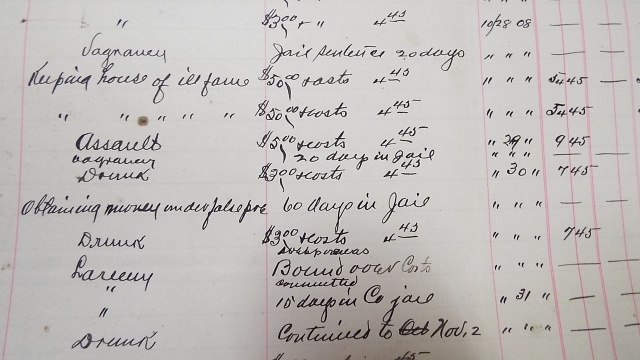 " $3⁰⁰ + " 4⁴⁵ 10/28 08 —
Vagrancy Jail sentence 20 days " " " —
Keeping house of ill fame $50⁰⁰ + costs 4⁴⁵ " " " 54 45
" " " " " $50⁰⁰ + costs 4⁴⁵ " " " 54 45
Assault $5⁰⁰ + costs 4⁴⁵ " 29 " 9 45
vagrancy 20 day in jail " " " —
Drunk $3⁰⁰ + costs 4⁴⁵ " 30 " 7 45
Obtaining money under false pre 60 days in Jail " " " —
Drunk $3⁰⁰ + costs 4⁴⁵ " " " 7 45
Larceny Bound over Costs " " " —
committed
" 15 days in Co jail " 31 " —
"
Drunk Continued to Nov. 2 " " " —
45